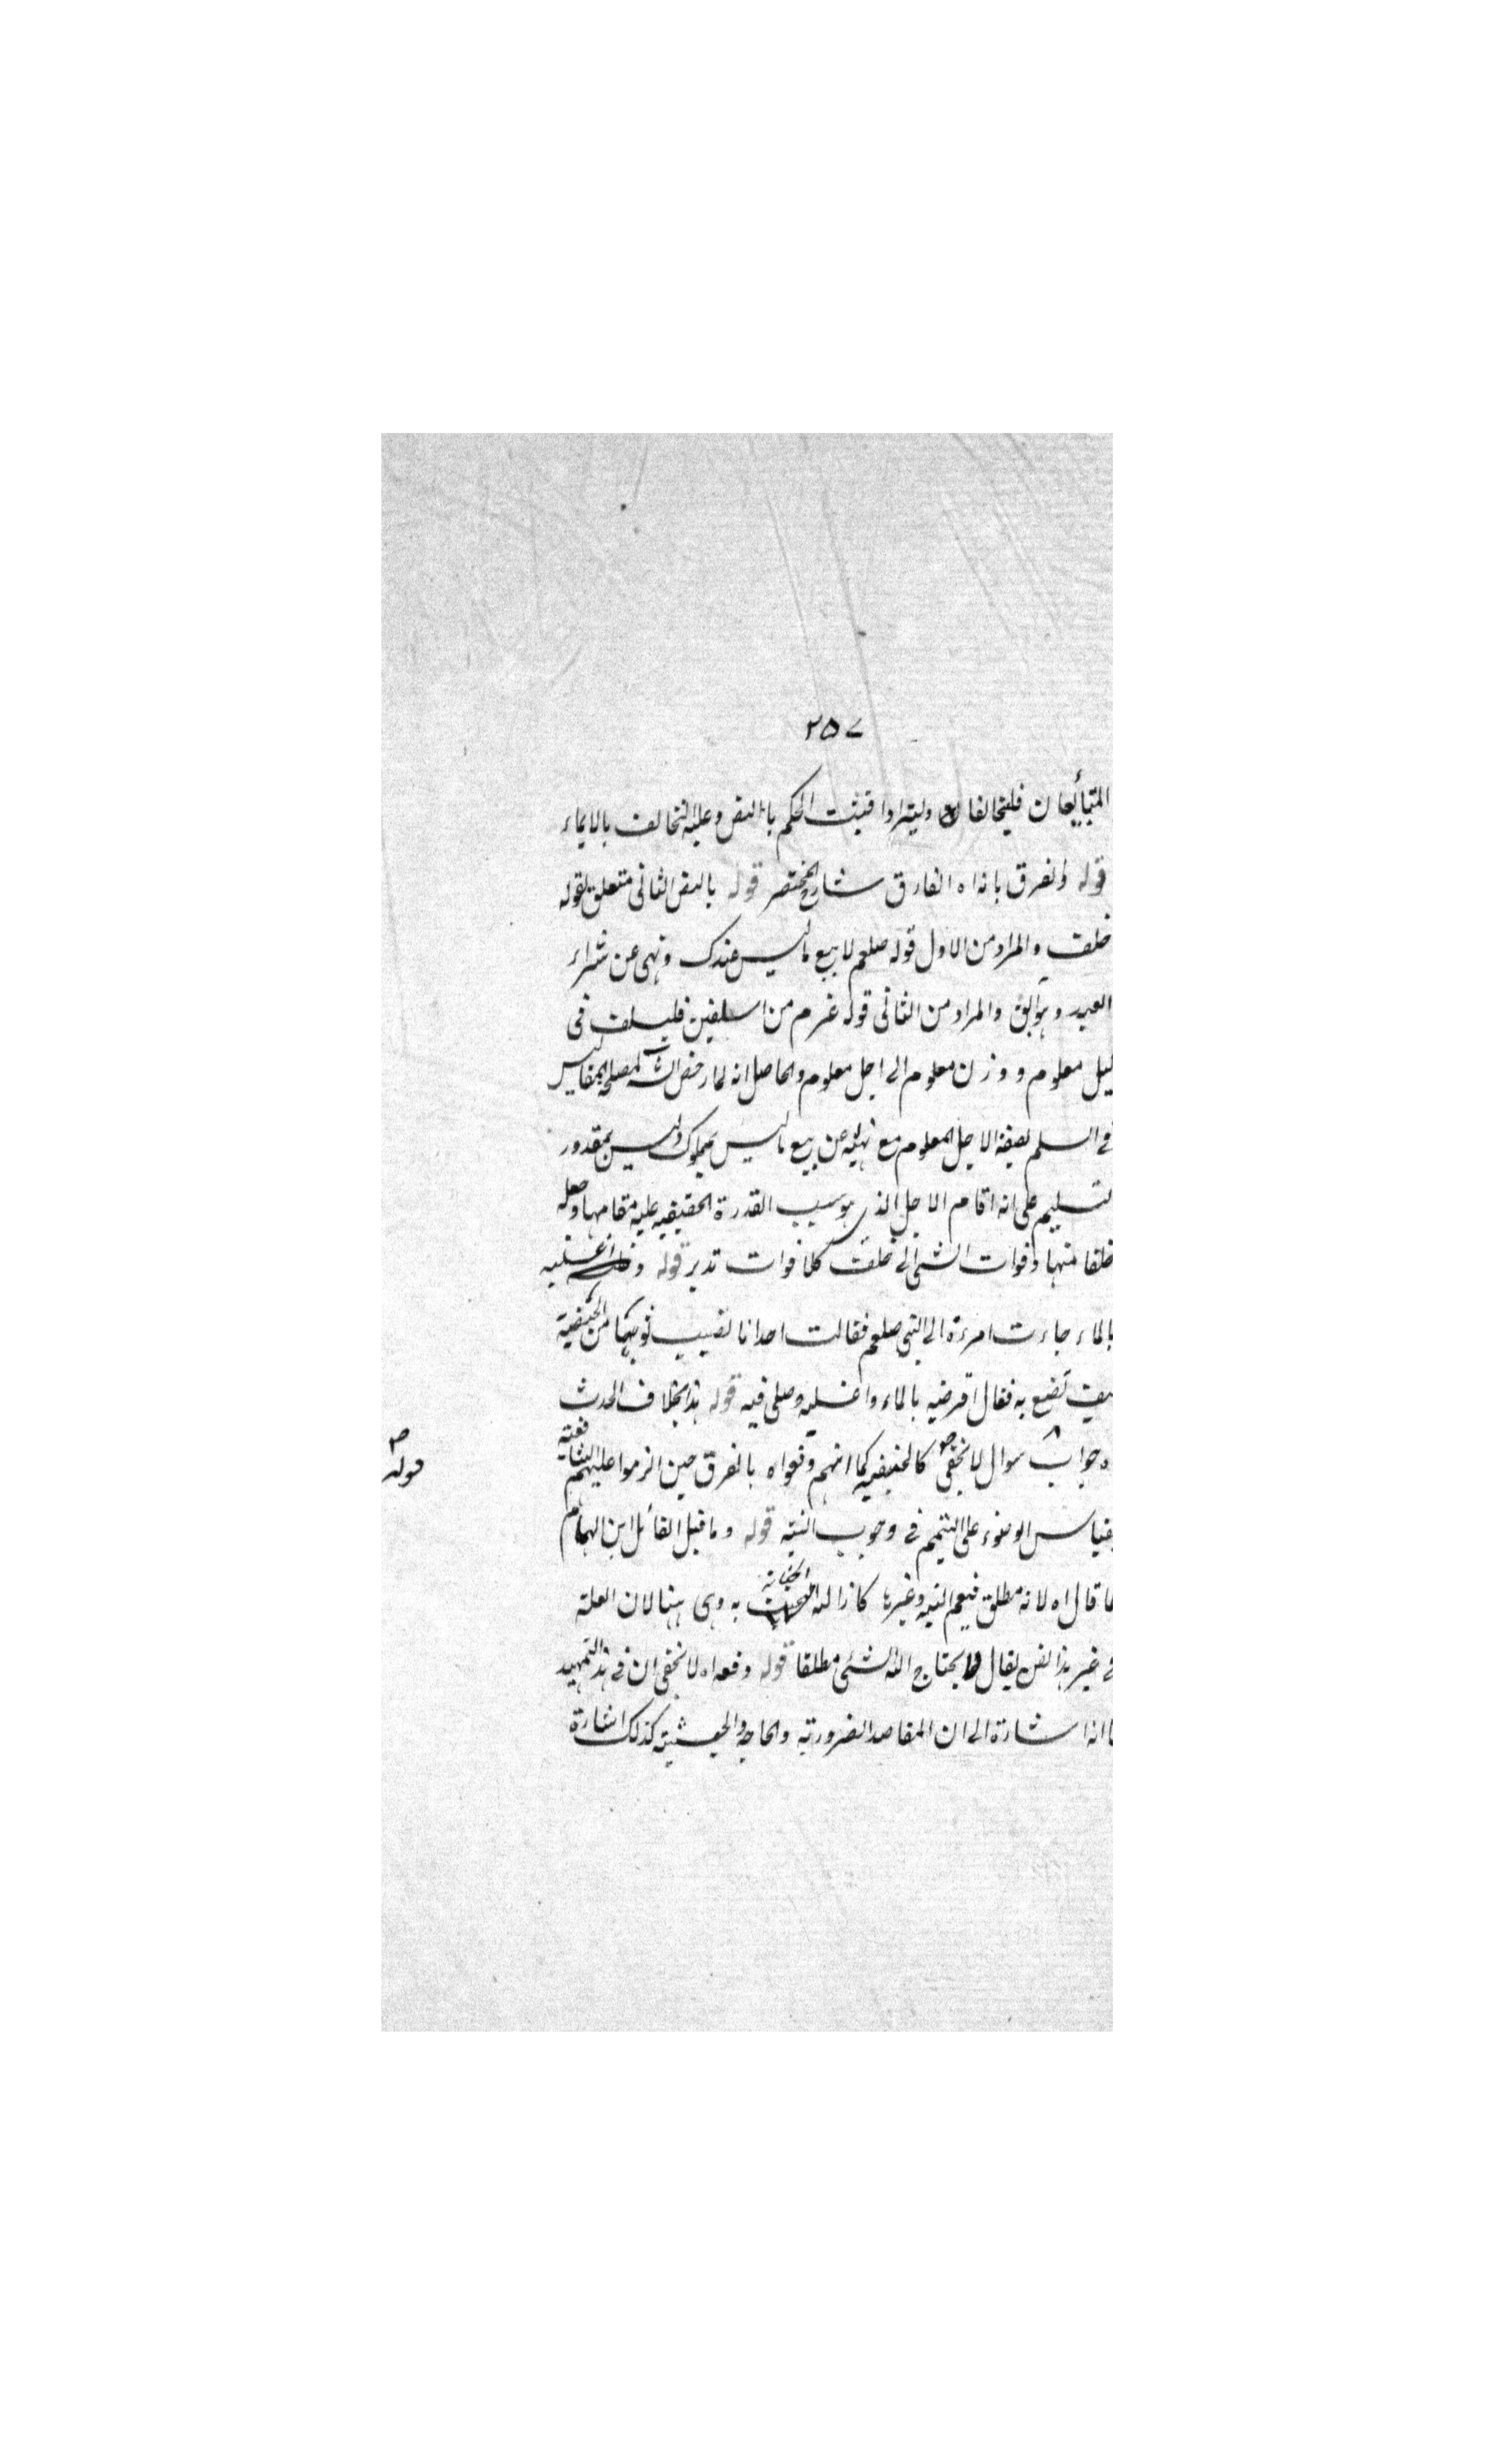 ٢٥٧
المتبايعان فليتحالفا وليترادا فيثبت الحكم بالنص وعلية التحالف بالايماء
قوله والفرق بانه اه الفارق شارح المختصر قوله بالنص الثانى متعلق بقوله
خلف والمراد من الاول قوله صلعم لا بيع ما ليس عندك ونهى عن شراء
العبد وهو آبق والمراد من الثانى قوله عم من اسلف فليسلف فى
كيل معلوم ووزن معلوم الى اجل معلوم والحاصل انه لما رخص الشارع لمصلحة المفاليس
فى السلم بصفة الاجل المعلوم مع نهيه عن بيع ما ليس بمملوك وليس بمقدور
التسليم على انه اقام الاجل الذى هو سبب القدرة الحقيقية عليه مقامها وجعله
خلفا منها وفوات الشئ الى خلف كلا فوات تدبر قوله واغسليه
بالماء جاءت امرءة الى النبى صلعم فقالت احدانا تصيب ثوبها من الحيضة
كيف تصنع به فقال اقرضيه بالماء واغسليه وصلى فيه قوله هذا بخلاف الحدث
اه جواب سوال لا يخفى كالحنفية كما انهم دفعواه بالفرق حين الزموا عليهم الشافعية
بقياس الوضوء على التيمم فى وجوب النية قوله وما قيل القائل ابن الهمام
ما قال اه لانه مطلق فيعم النية وغيرها كازالة الخبث به وهى هنا لان العلة
فى غير هذا الفن يقال لما يحتاج اليه الشئ مطلقا قوله دفعه اه لا يخفى ان فى هذا التمهيد
ما انه اشارة الى ان المقاصد الضرورية والحاجية والحيثية كذلك اشارة
قوله